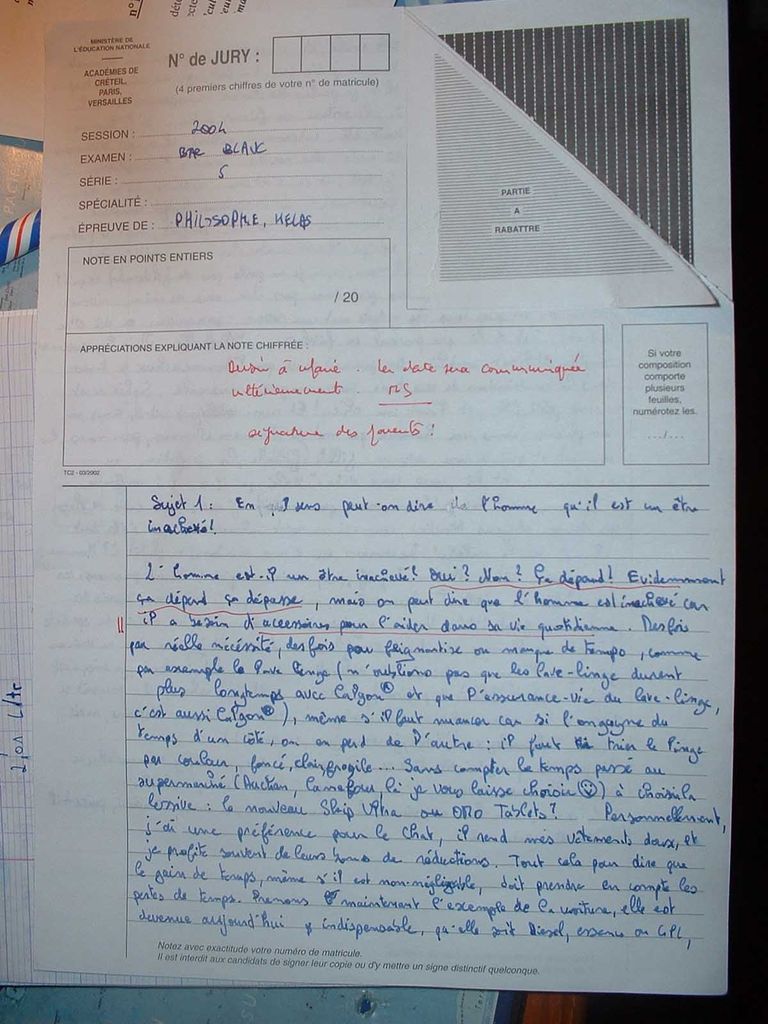 MINISTÈRE DE
L'ÉDUCATION NATIONALE
ACADÉMIES DE
CRÉTEIL,
PARIS,
VERSAILLES
N° de JURY :
(4 premiers chiffres de votre n° de matricule)
SESSION : 2004
EXAMEN : BAC BLANC
SÉRIE : S
SPÉCIALITÉ :
ÉPREUVE DE : PHILOSOPHIE, HELAS
PARTIE
A
RABATTRE
NOTE EN POINTS ENTIERS
/ 20
APPRÉCIATIONS EXPLIQUANT LA NOTE CHIFFRÉE :
Devoir à refaire. La date sera communiquée
ultérieurement.
signature des parents !
Si votre
composition
comporte
plusieurs
feuilles,
numérotez les.
..../....
TC2 - 03/2002
Sujet 1 : En sens peut-on dire de l'homme qu'il est un être
inachevé !
L'homme est-il un être inachevé ? Oui ? Non ? Ça dépend ! Evidemment
ça dépend ça dépasse, mais on peut dire que l'homme est inachevé car
il a besoin d'accessoires pour l'aider dans sa vie quotidienne. Des fois
par réelle nécessité, des fois pour feignantise ou manque de temps, comme
par exemple le lave linge (n'oublions pas que les lave-linge durent
plus longtemps avec Calgon® et que l'assurance-vie du lave-linge,
c'est aussi Calgon®), même s'il faut nuancer car si l'on gagne du
temps d'un côté, on en perd de l'autre : il faut trier le linge
par couleur, foncé, clair, fragile... Sans compter le temps passé au
supermarché (Auchan, Carrefour là je vous laisse choisir ☺) à choisir la
lessive : le nouveau Skip Ultra ou OMO Tablets ? Personnellement,
j'ai une préférence pour le Chat, il rend mes vêtements doux, et
je profite souvent de leurs bons de réductions. Tout cela pour dire que
le gain de temps, même s'il est non-négligeable, doit prendre en compte les
pertes de temps. Prenons maintenant l'exemple de la voiture, elle est
devenue aujourd'hui indispensable, qu'elle soit Diesel, essence ou GPL,
Notez avec exactitude votre numéro de matricule.
Il est interdit aux candidats de signer leur copie ou d'y mettre un signe distinctif quelconque.